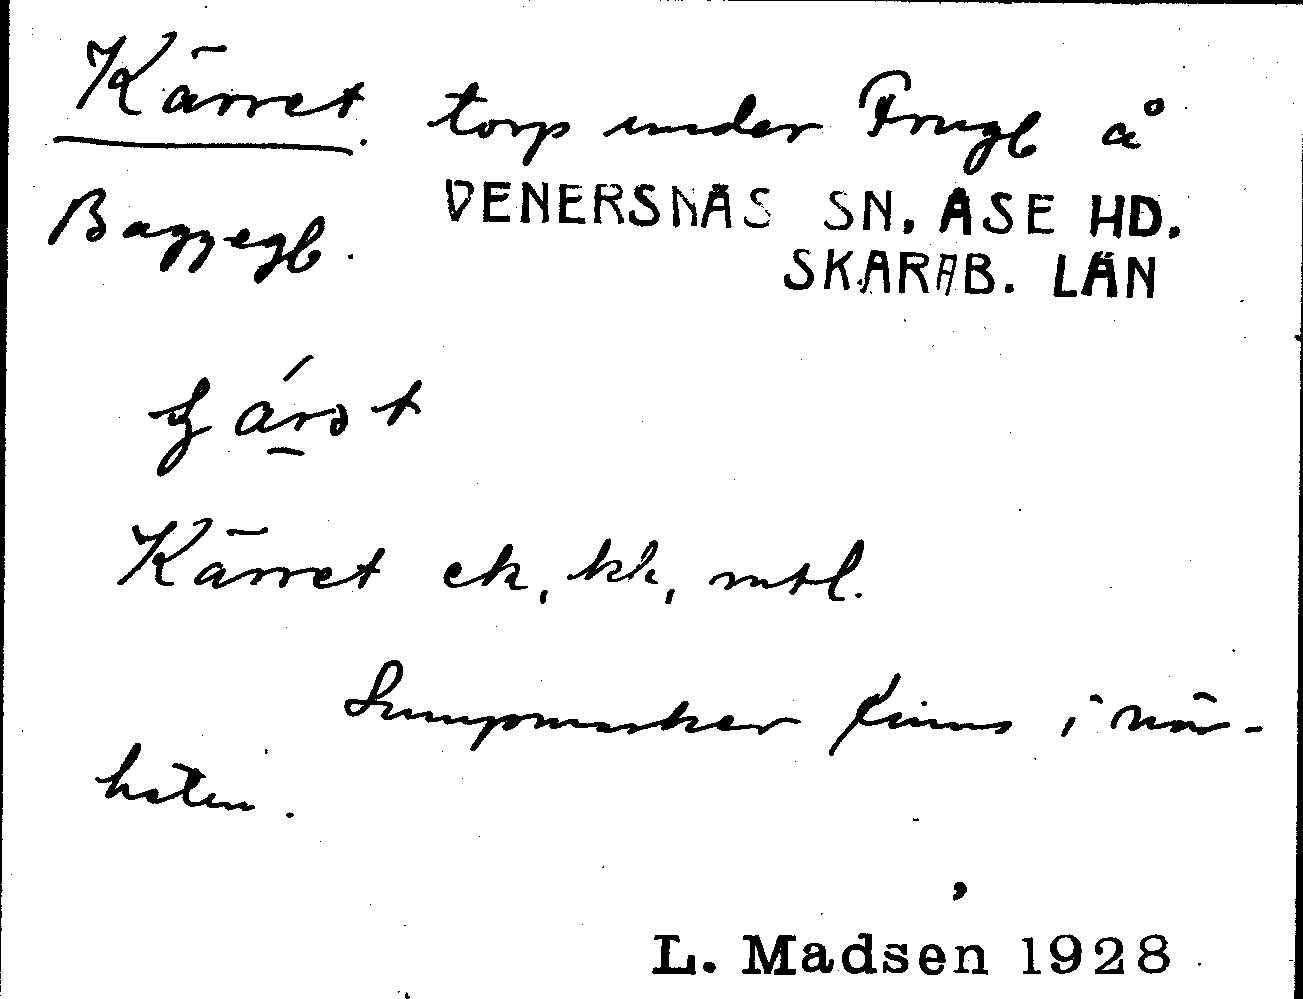 Kärret. torp under Frugb å
Baggegb.
VENERSNÄS SN. ÅSE HD.
SKARAB. LÄN
Kärret ek, kk, mtl.
Sumpmarker finns i när-
heten.
L. Madsen 1928